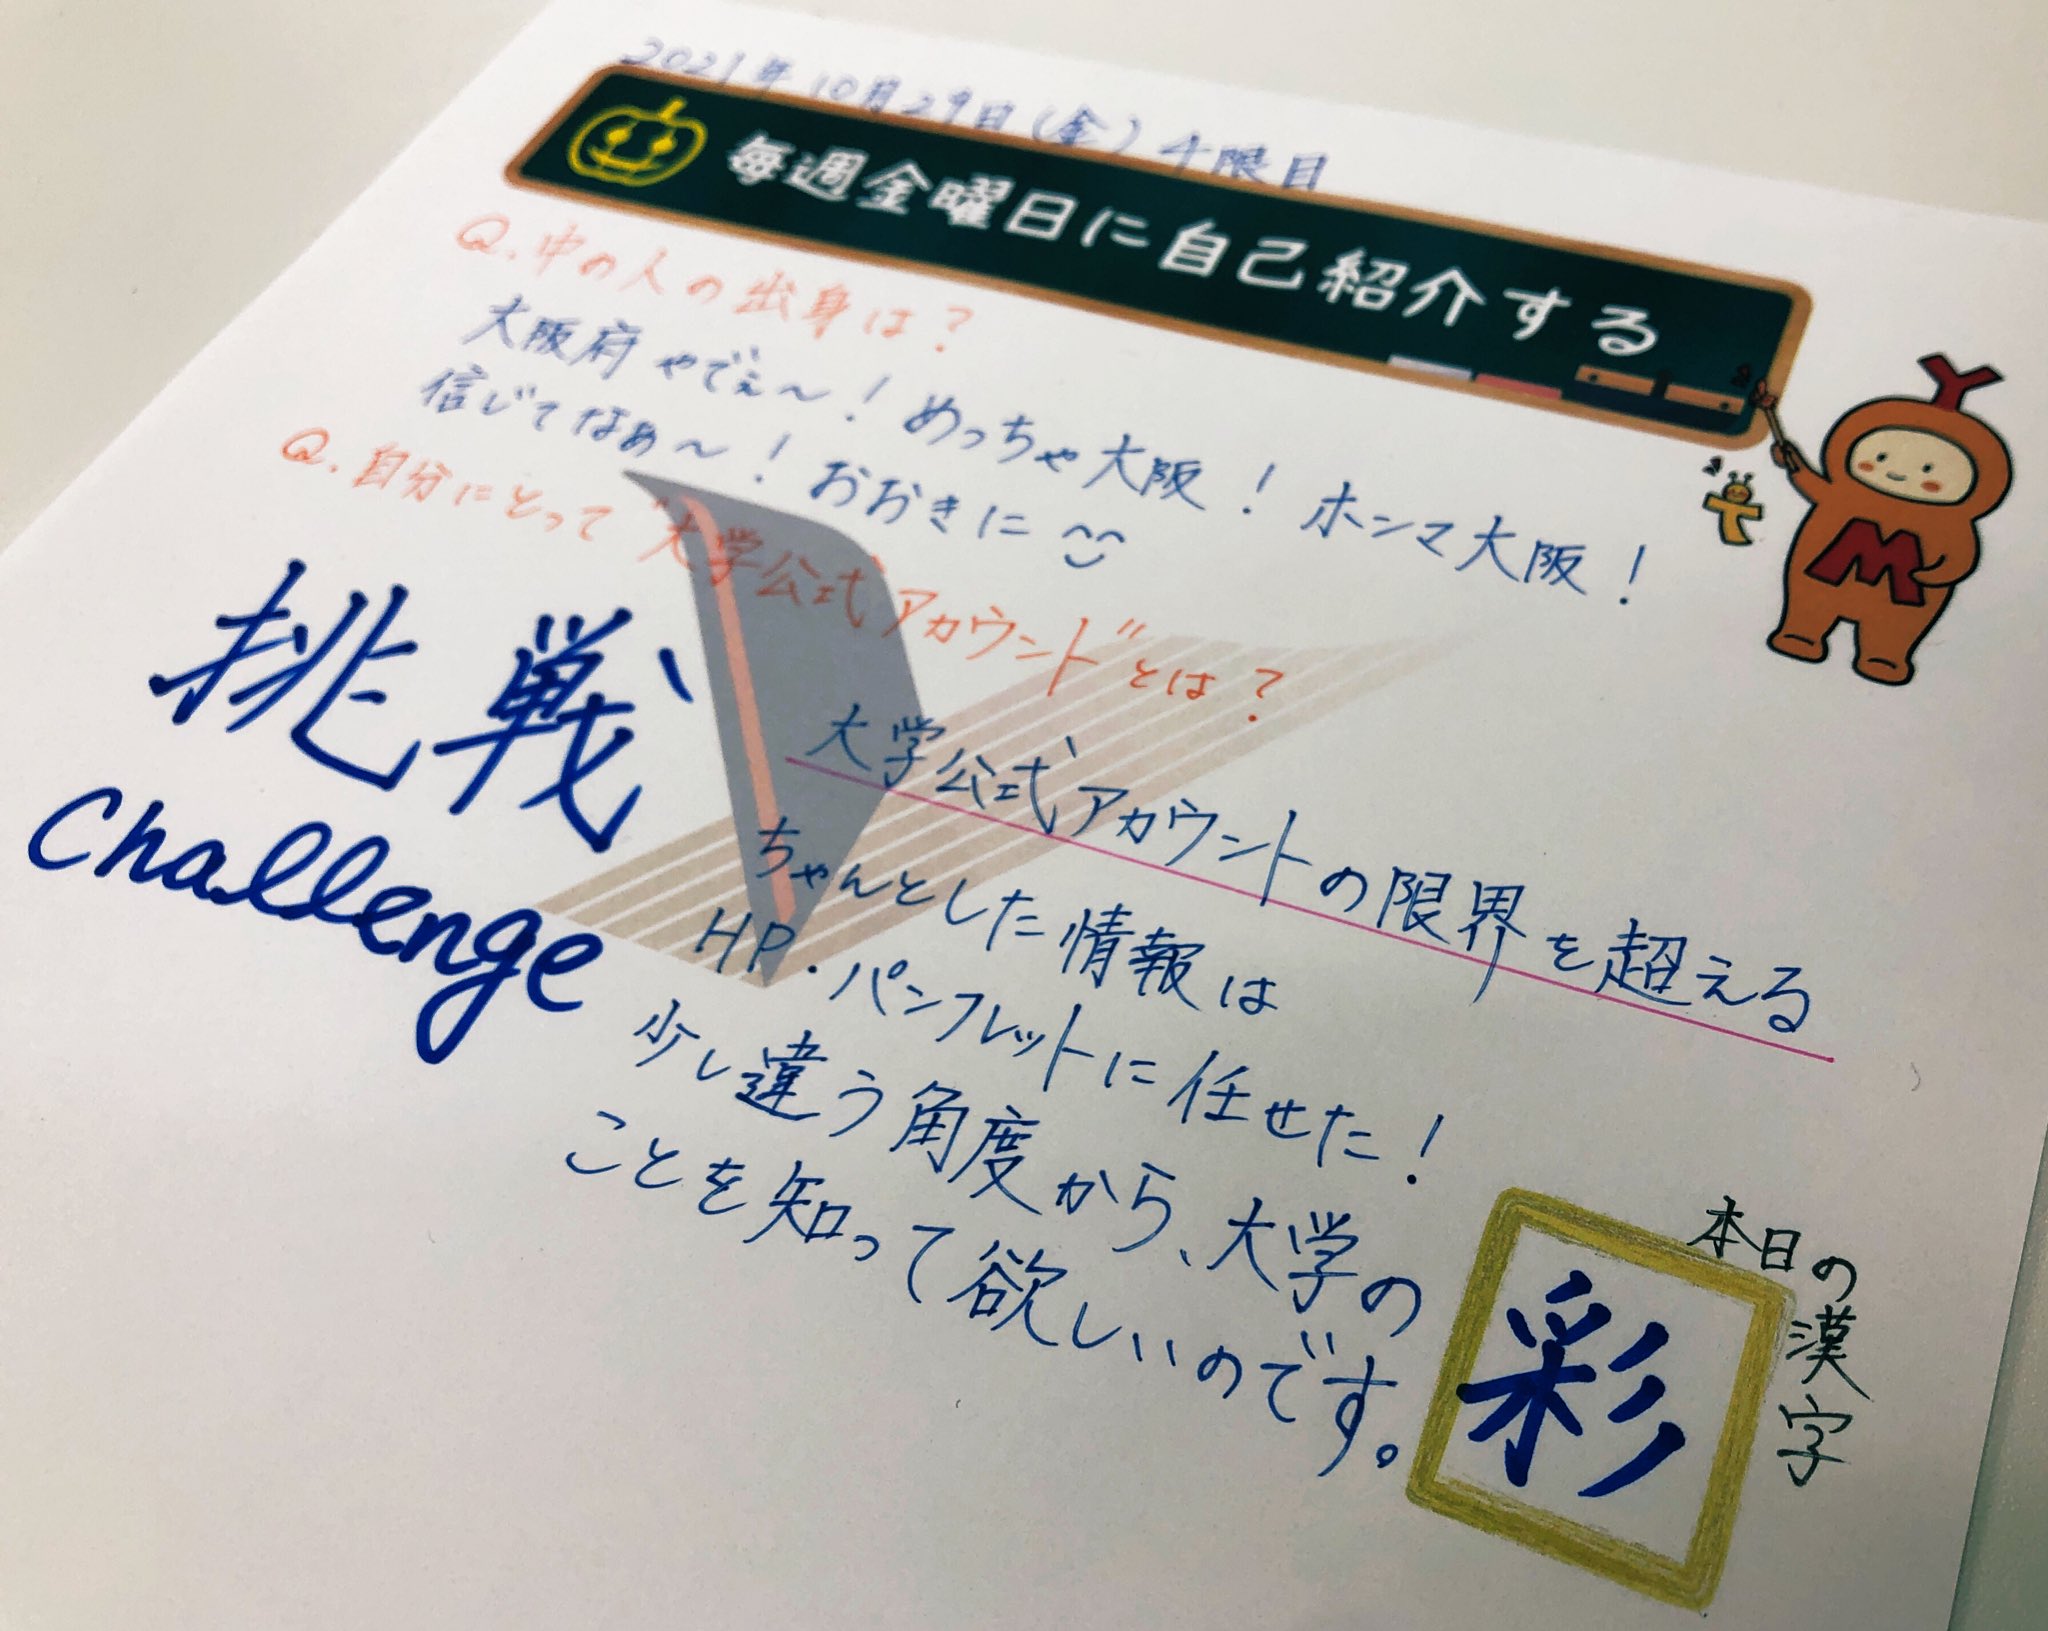 2021年10月29日(金)4限目
毎週金曜日に自己紹介する
Q.中の人の出身は?
大阪府やでぇ〜!めっちゃ大阪!ホンマ大阪!
信じてなぁ〜!おおきに
Q.自分にとって"大学公式アカウント"とは?
挑戦
Challenge
大学公式アカウントの限界を超える
ちゃんとした情報は
HP・パンフレットに任せた!
少し違う角度から、大学の
ことを知って欲しいのです。
本日の漢字
彩
M